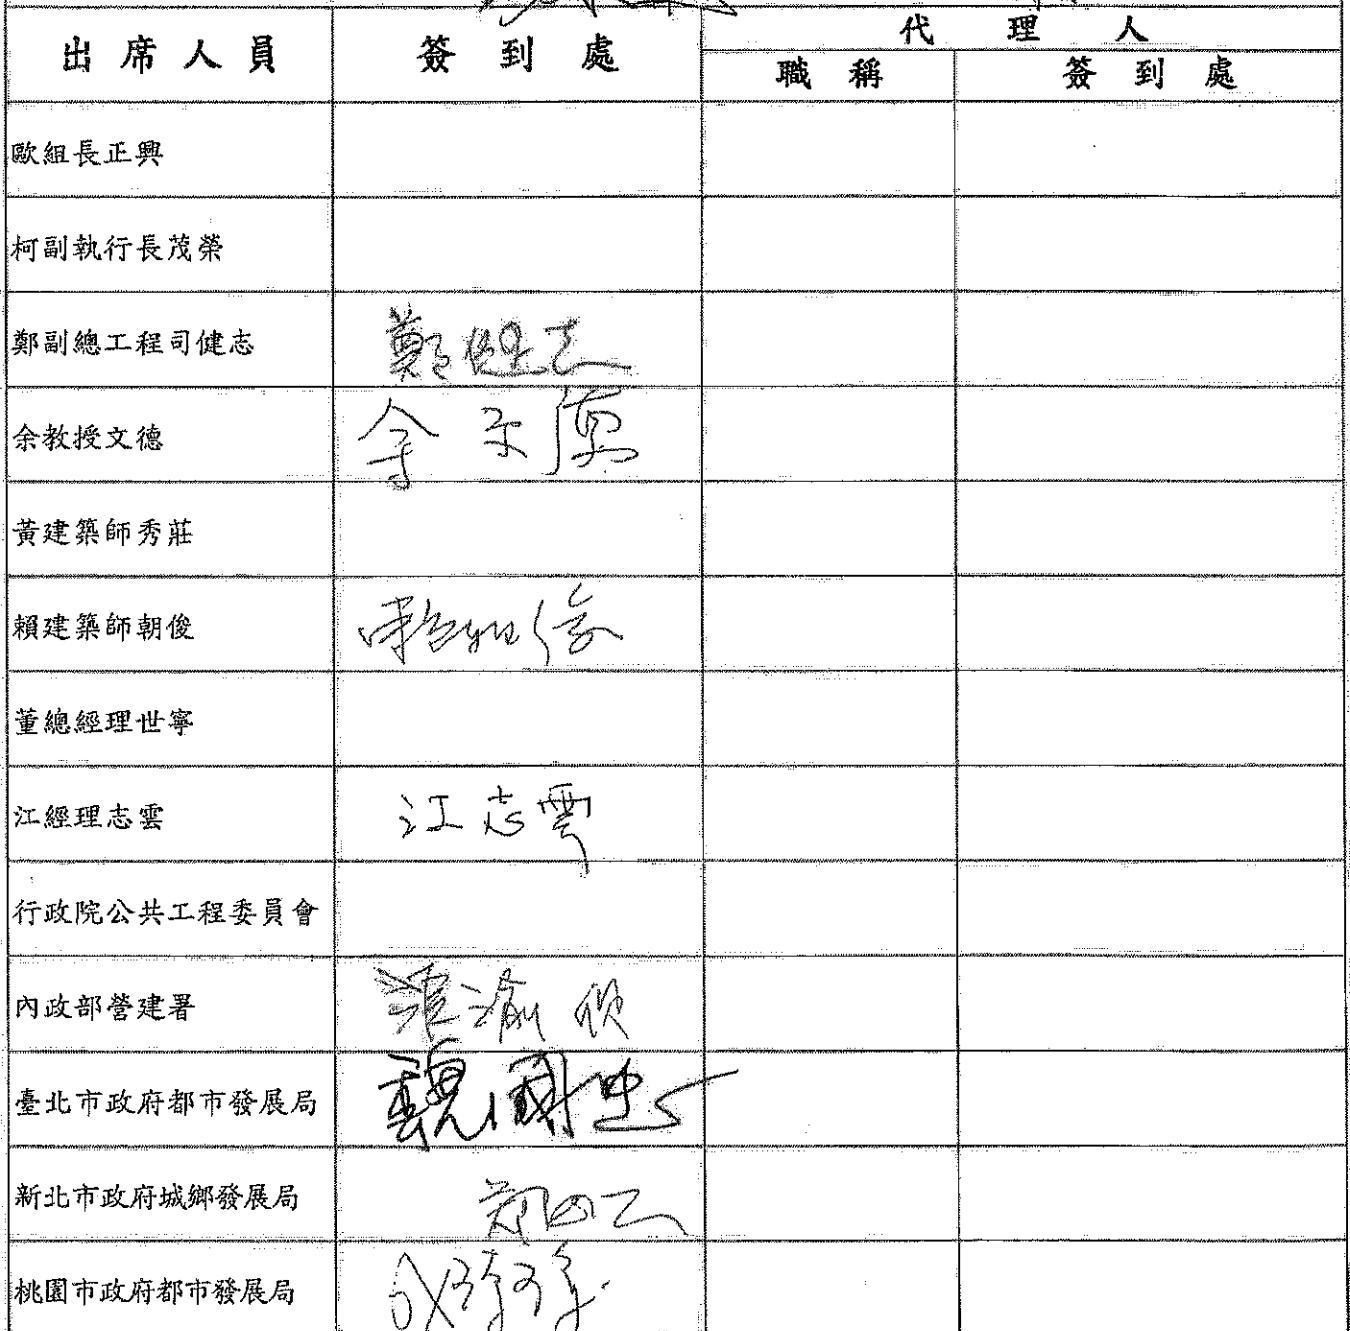 出席人員 簽到處 代理人
職稱 簽到處
歐組長正興
柯副執行長茂榮
鄭副總工程司健志 鄭健志
余教授文德 余文德
黃建築師秀莊
賴建築師朝俊 賴朝俊
董總經理世寧
江經理志雲 江志雲
行政院公共工程委員會
內政部營建署
臺北市政府都市發展局 魏國忠
新北市政府城鄉發展局
桃園市政府都市發展局